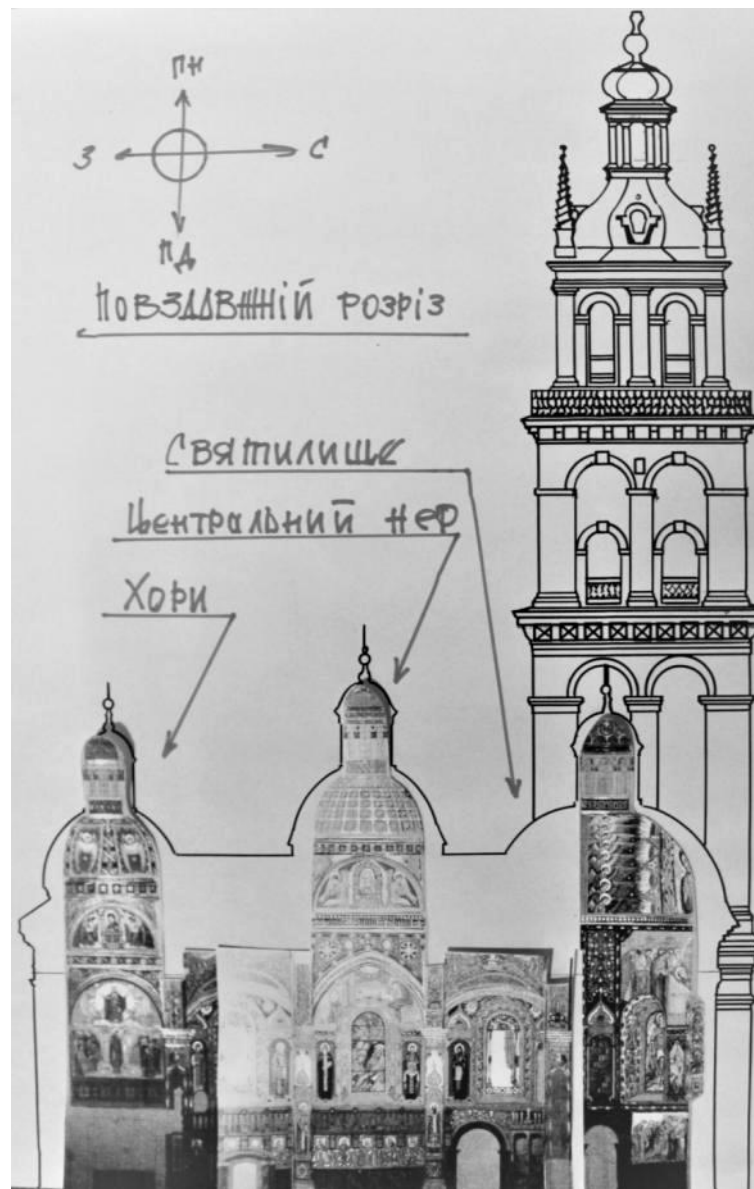 ПН
З С
ПД
Повздовжній розріз
Святилище
Центральний неф
Хори